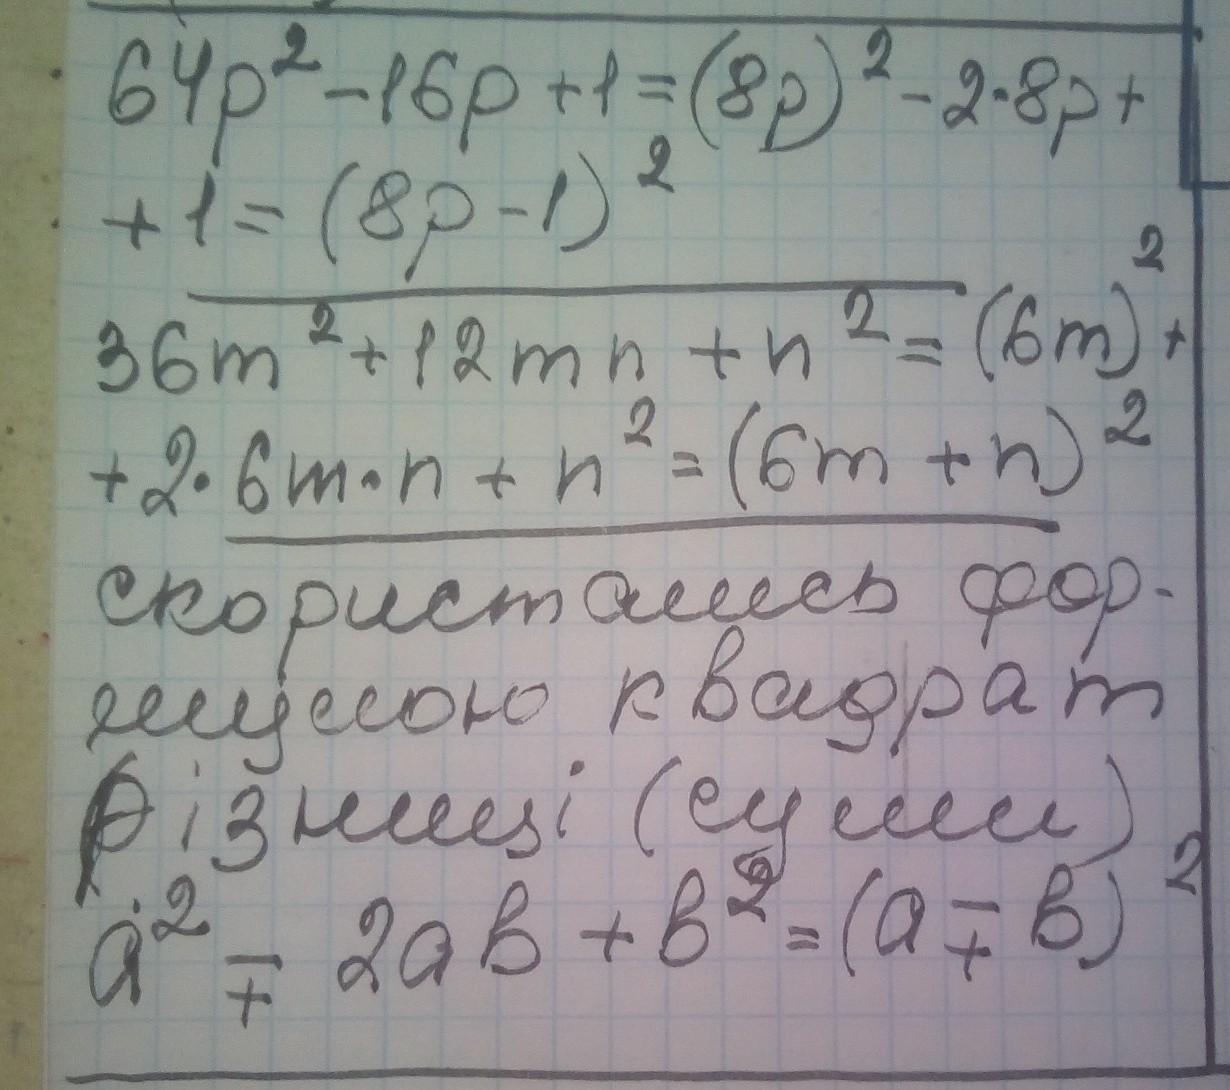 64p² - 16p + 1 = (8p)² - 2·8p +
+ 1 = (8p - 1)²
36m² + 12mn + n² = (6m)² +
+ 2·6m·n + n² = (6m + n)²
скористались фор-
мулою квадрат
різниці (суми)
a² ∓ 2ab + b² = (a ∓ b)²